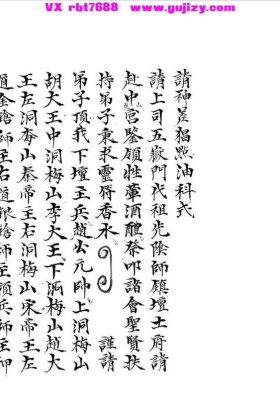 VX rbt7688 www.gujizy.com
請神差猖點油科式
請上司五嶽門代祖先陰師鎮壇土府請
赴中宮鑒領牲葷酒醴叅叩諸會聖賢扶
持弟子東求靈符香水 謹請
弟子頂我下壇主兵趙公元帥上洞梅山
胡大王中洞梅山李大王下洞梅山趙大
王左洞梅山秦帝王右洞梅山宋帝王左